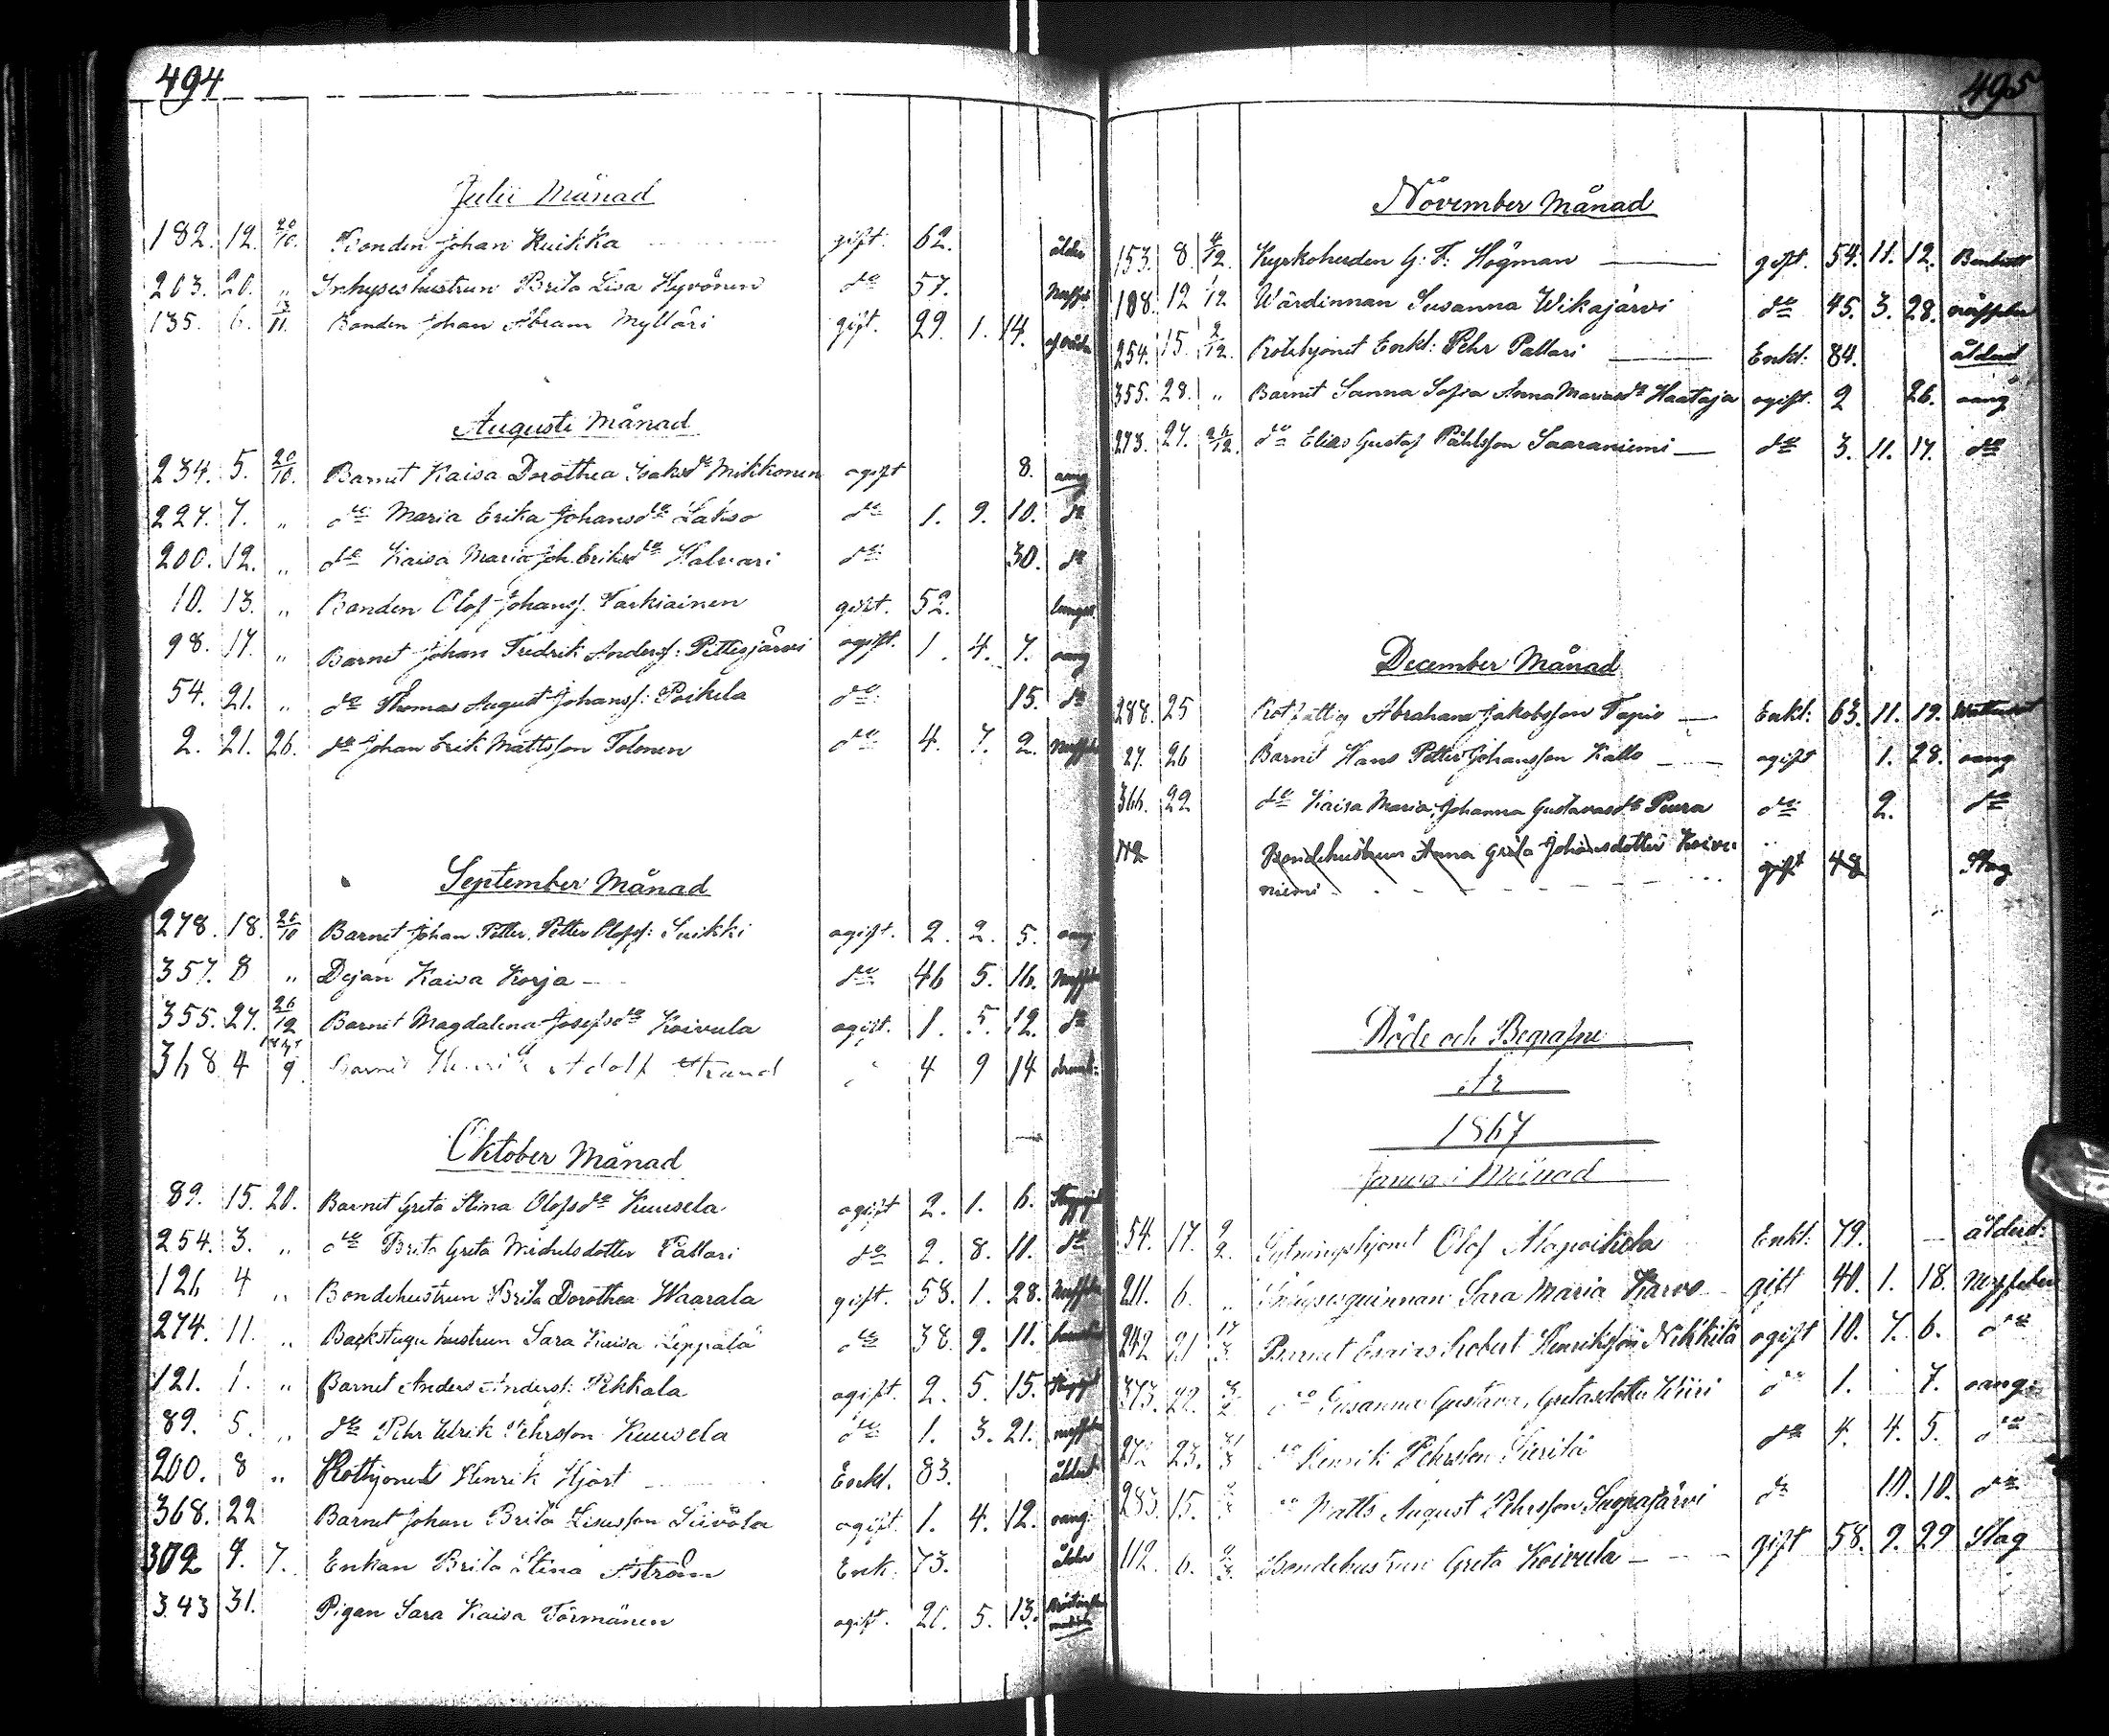 494
Julii Månad
182. 12. 20/10. Bonden Johan Kuikka gift. 62. ålder
203. 20. " Inhyseshustrun Brita Lisa Hyvönen do 57. Nerffeb.
135. 6. 13/11. Bonden Johan Abram Mylläri gift. 29. 1. 14.
Augusti Månad
234. 5. 20/10. Barnet Kaisa Dorothea Isaksdr Mikkonen ogift 8. oang
227. 7. " do Maria Erika Johansdr Lakso do 1. 9. 10. do
200. 12. " do Kaisa Maria Joh. Eriksdr Halvari do 30. do
10. 13. " Bonden Olof Johansf. Tarkiainen gift. 52. lungs.
98. 17. " Barnet Johan Fredrik Andersf: Pittisjärvi ogift. 1. 4. 7. oang
54. 21. " do Thomas August Johansf: Poikela do. 15. do
2. 21. 26. do Johan Erik Mattsson Tolonen do 4. 7. 2. Nerffeb
September Månad
278. 18. 20/10 Barnet Johan Petter, Petter Olofsf: Suikki ogift. 2. 2. 5. oang
357. 8 " Dejan Kaisa Korja do 46 5. 16. Nerffeb
355. 27. 26/12 Barnet Magdalena Josefsdr Koivula ogift. 1. 5. 12. do
368 4 9 Barnet Henrik Adolf Strand 4 9 14 drunk:
Oktober Månad
89. 15. 20. Barnet Greta Stina Olofsdr Kuusela ogift 2. 1. 6.
254. 3. " do Brita Greta Michelsdotter Pallari do 2. 8. 11. do
126 4 " Bondehustrun Brita Dorothea Waarala gift. 58. 1. 28. Nerffeb
274. 11. " Backstugu hustrun Sara Kaisa Leppälä do 38. 9. 11.
121. 1. " Barnet Anders Andersf: Pekkala ogift. 2. 5. 15.
89. 5. " do Pehr Ulrik Pehrsson Kuusela do 1. 3. 21. nerffeb
200. 8 " Rotehjonet Henrik Hjort Enkl. 83. ålderd.
368. 22 Barnet Johan Brita Lisasson Siivola ogift. 1. 4. 12. oang.
302 4. 7. Enkan Brita Stina Åström Enk. 73. ålder
343 31. Pigan Sara Kaisa Törmänen ogift. 21. 5. 13.
495
November Månad
153. 8. 4/12. Kyrkoherden G. F. Högman gift. 54. 11. 12.
188. 12 /12 Wärdinnan Susanna Wikajärvi do 45. 3. 28. nerffeber
254. 15. 2/12. Rotehjonet Enkl: Pehr Pallari Enkl: 84. ålderd
355. 28. " Barnet Sanna Sofia Anna Mariasdr Haataja ogift. 2 26. oang
273. 27. 26/12. do Elias Gustaf Påhlsson Saaraniemi do 3. 11. 17. do
December Månad
288. 25 Rotfattig Abraham Jakobsson Tapio Enkl: 63. 11. 19. Wattusot
27. 26 Barnet Hans Petter Johansson Kallo ogift 1. 28. oang
366. 22 do Kaisa Maria, Johanna Gustavasdr Peura do 2. do
112 Bondehustrun Anna Greta Johansdotter Koivu
niemi gift 48 Slag
Döde och Begrafne
År
1867
Januari Månad
54. 17. 2/2. Sytningshjonet Olof Alapoikela Enkl: 79. ålderd:
211. 6. " Inhysesqvinnan Sara Maria Karvo gift 40. 1. 18. Nerffeber
242 21 17/3 Barnet Esaias Robert Henriksson Nikkilä ogift 10. 7. 6. do
373. 22. 3/2 do Susanna Gustava, Gretasdotter Kiiri do 1. 7. oang:
272 23. 31/3 do Henrik Pehrsson Sierilä do 4. 4. 5. do
283. 15. do Matts August Pehrsson Suopajärvi do 10. 10. do
112. 6. 2/3 Bondehustrun Greta Koivula gift 58. 9. 29 Slag